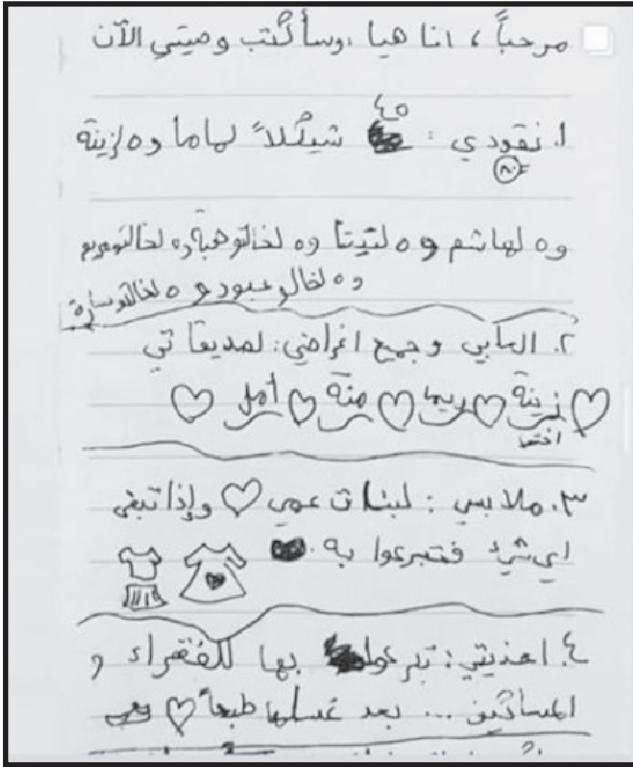 مرحباً، انا هيا، وسأكتب وصيتي الآن
١. نقودي: ٤٥ شيكلاً لماما و٥ لزينة
و٥ لهاشم و٥ لتيتا و٥ لخالتو هبة و٥ لخالتو مريم
و٥ لخالو عبود و٥ لخالتو سارة
٢. العابي وجميع اغراضي: لصديقاتي
زينة ريما منة أمل
اختي
٣. ملابسي: لبنات عمي وإذا تبقى
اي شيء فتبرعوا به.
٤. احذيتي: تبرعوا بها للفقراء و
المساكين ... بعد غسلها طبعاً